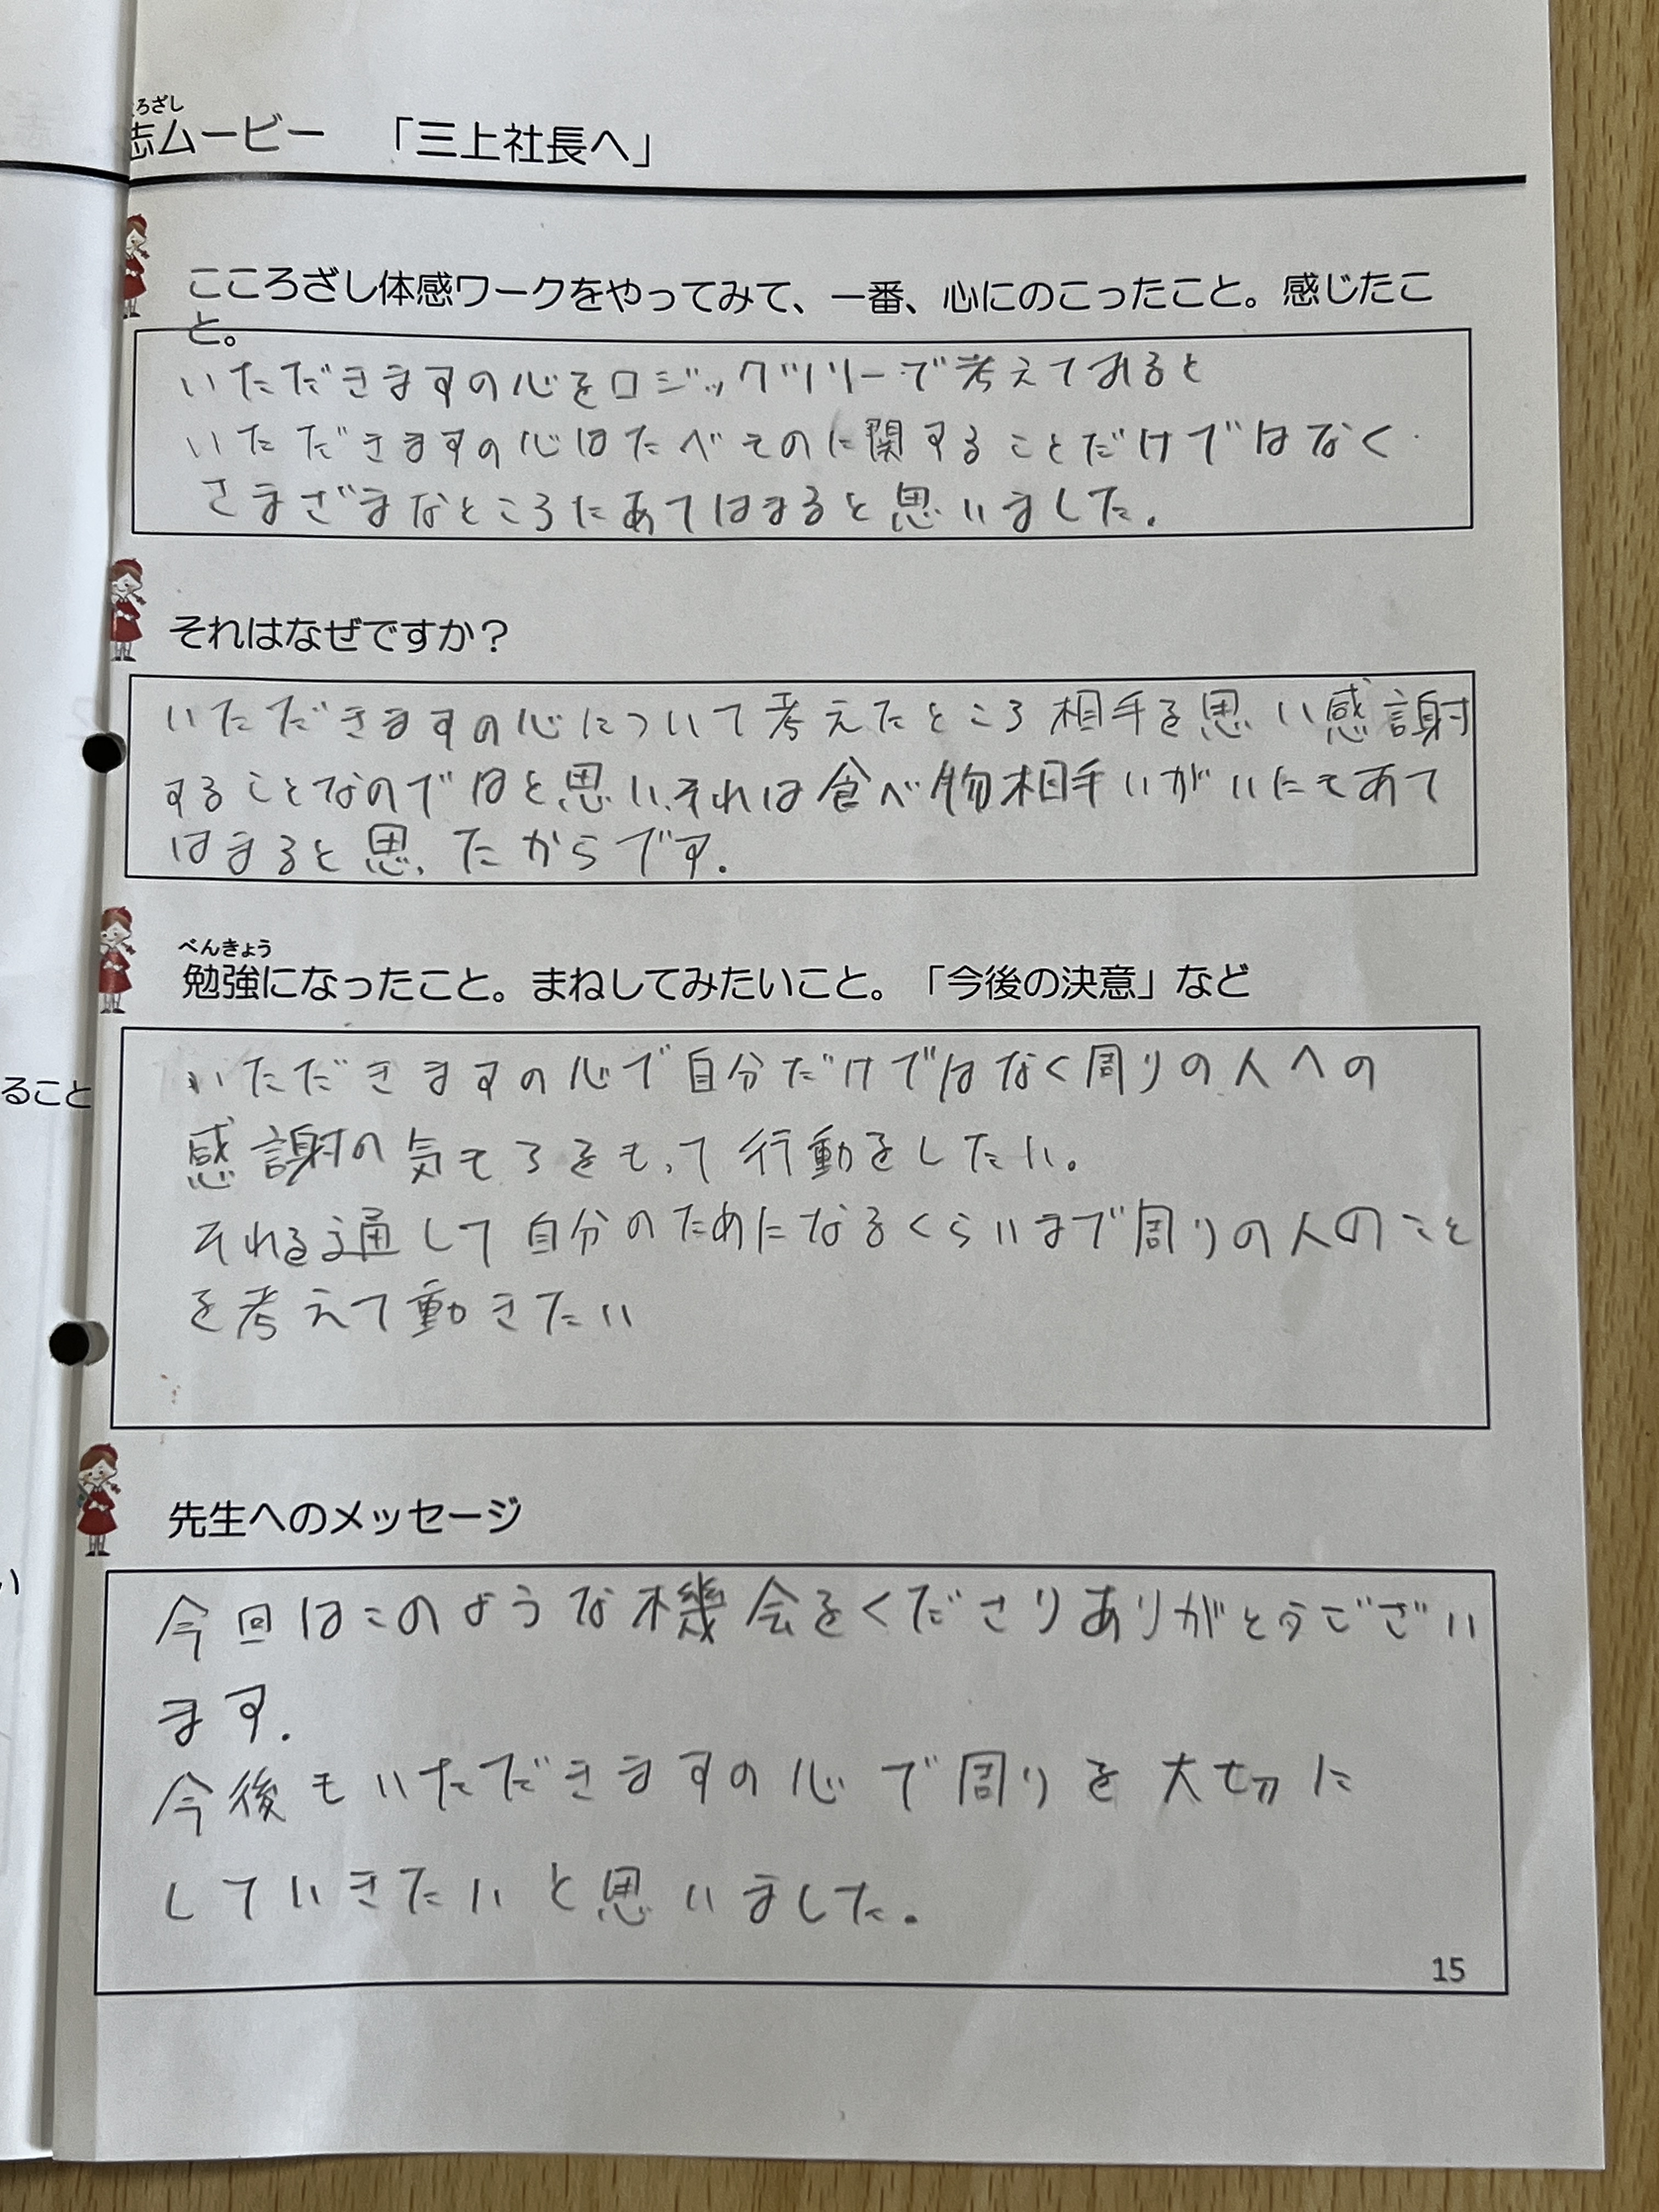 ろざし
志ムービー 「三上社長へ」
こころざし体感ワークをやってみて、一番、心にのこったこと。感じたこ
と。
いただきますの心をロジックツリーで考えてみると
いただきますの心はたべものに関することだけではなく
さまざまなところにあてはまると思いました.
それはなぜですか？
いただきますの心について考えたところ相手を思い感謝
することなのではと思い、それは食べ物相手いがいにもあて
はまると思ったからです.
べんきょう
勉強になったこと。まねしてみたいこと。「今後の決意」など
いただきますの心で自分だけではなく周りの人への
感謝の気もちをもって行動をしたい。
それを通して自分のためになるくらいまで周りの人のこと
を考えて動きたい
ること
先生へのメッセージ
い
今回はこのような機会をくださりありがとうござい
ます.
今後もいただきますの心で周りを大切に
していきたいと思いました.
15